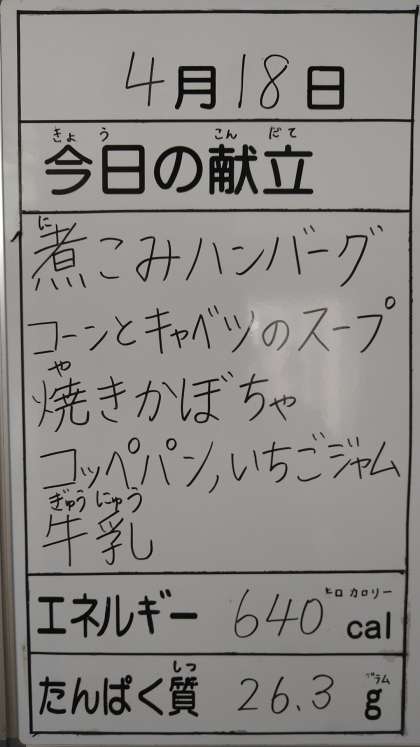 4月18日
きょう こんだて
今日の献立
に
煮こみハンバーグ
コーンとキャベツのスープ
や
焼きかぼちゃ
コッペパン,いちごジャム
ぎゅうにゅう
牛乳
キロカロリー
エネルギー 640 cal
しつ グラム
たんぱく質 26.3 g